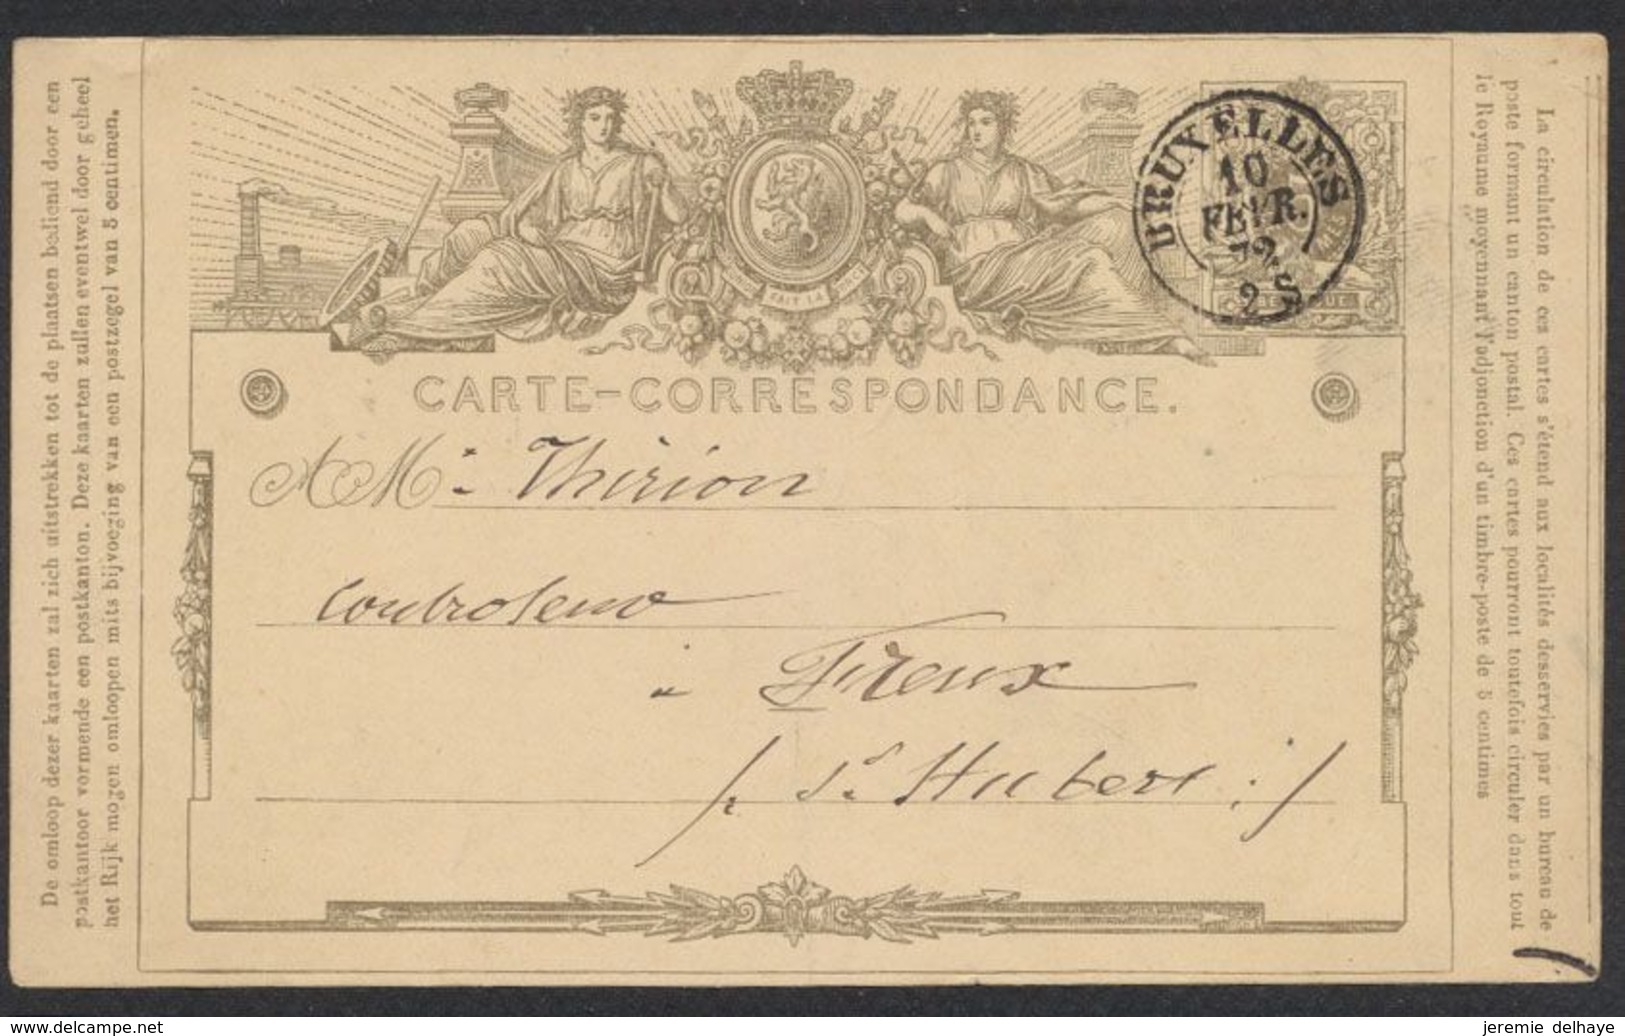 De omloop dezer kaarten zal zich uitstrekken tot de plaatsen bediend door een
postkantoor vormende een postkanton. Deze kaarten zullen eventwel door geheel
het Rijk mogen omloopen mits bijvoeging van een postzegel van 5 centimen.
BRUXELLES
10
FEVR.
72
2 S
FAIT LA
CARTE-CORRESPONDANCE.
A M r Thirion
Controleur
à Freux
/: St Hubert :/
La circulation de ces cartes s'étend aux localités desservies par un bureau de
poste formant un canton postal. Ces cartes pourront toutefois circuler dans tout
le Royaume moyennant l'adjonction d'un timbre-poste de 5 centimes
delcampe.net
jeremie delhaye